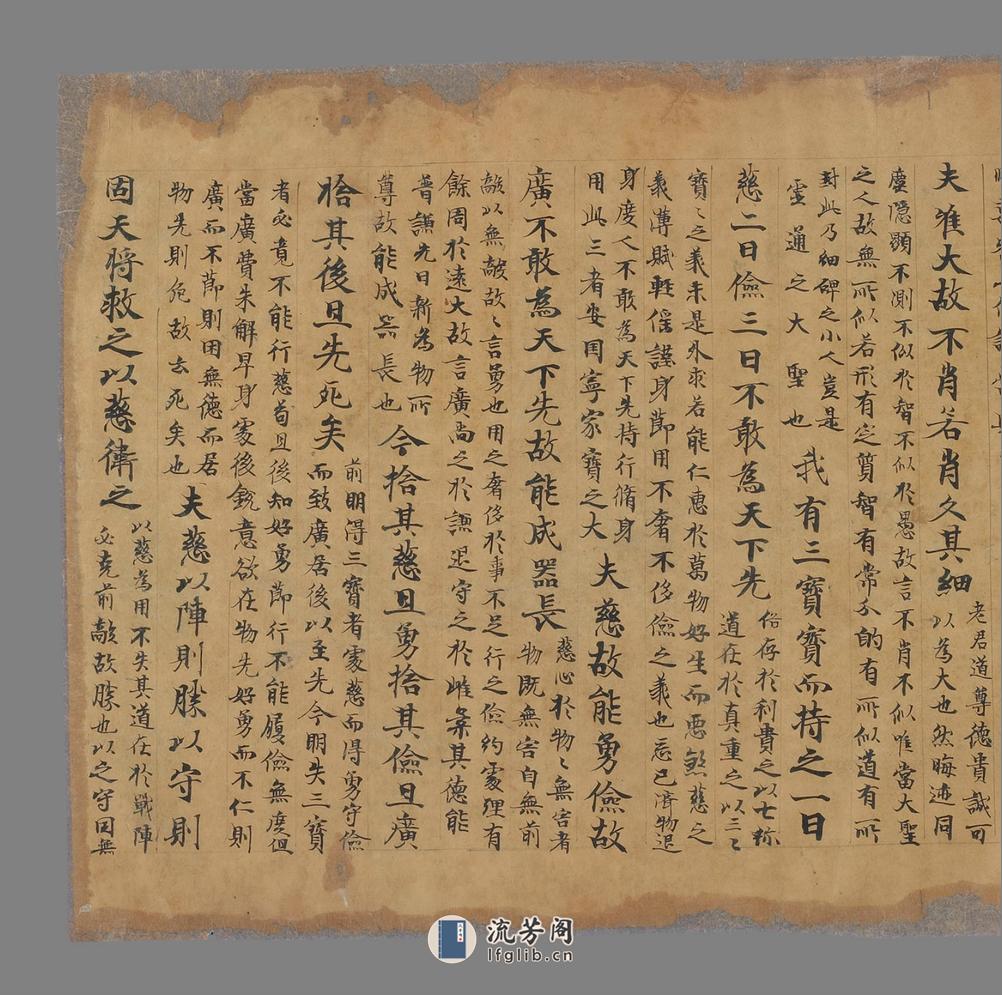 夫唯大故不肖若肖久其細
老君道尊德貴誠可
以為大也然晦迹同
塵隱顯不測不似於智不似於愚故言不肖不似唯當大聖
之人故無所似若形有定質智有常分的有所似道有所
封此乃細碑之小人豈是
靈通之大聖也
我有三寶寶而持之一曰
慈二曰儉三曰不敢為天下先
俗存於利貴之以七珎
道在於真重之以三〻
寶〻之義未是外求若能仁惠於萬物好生而惡煞慈之
義薄賦輕傜謹身節用不奢不侈儉之義也忘己濟物退
身度人不敢為天下先持行脩身
用此三者安国寧家寶之大
夫慈故能勇儉故
廣不敢為天下先故能成器長
慈心於物〻無害者
物既無害自無前
敵以無敵故〻言勇也用之奢侈於事不足行之儉約處理有
餘周於遠大故言廣尚之於謙退守之於雌柔其德能
普謙光日新為物所
尊故能成器長也
今捨其慈且勇捨其儉且廣
捨其後且先死矣
前明得三寶者處慈而得勇守儉
而致廣居後以至先今明失三寶
者必竟不能行慈苟且後知好勇節行不能履儉無度但
當廣費朱解早身處後銳意欲在物先好勇而不仁則
廣而不節則困無德而居
物先則危故去死矣也
夫慈以陣則勝以守則
固天將救之以慈衛之
以慈為用不失其道在於戰陣
必克前敵故勝也以之守固無
流芳阁
lfglib.cn